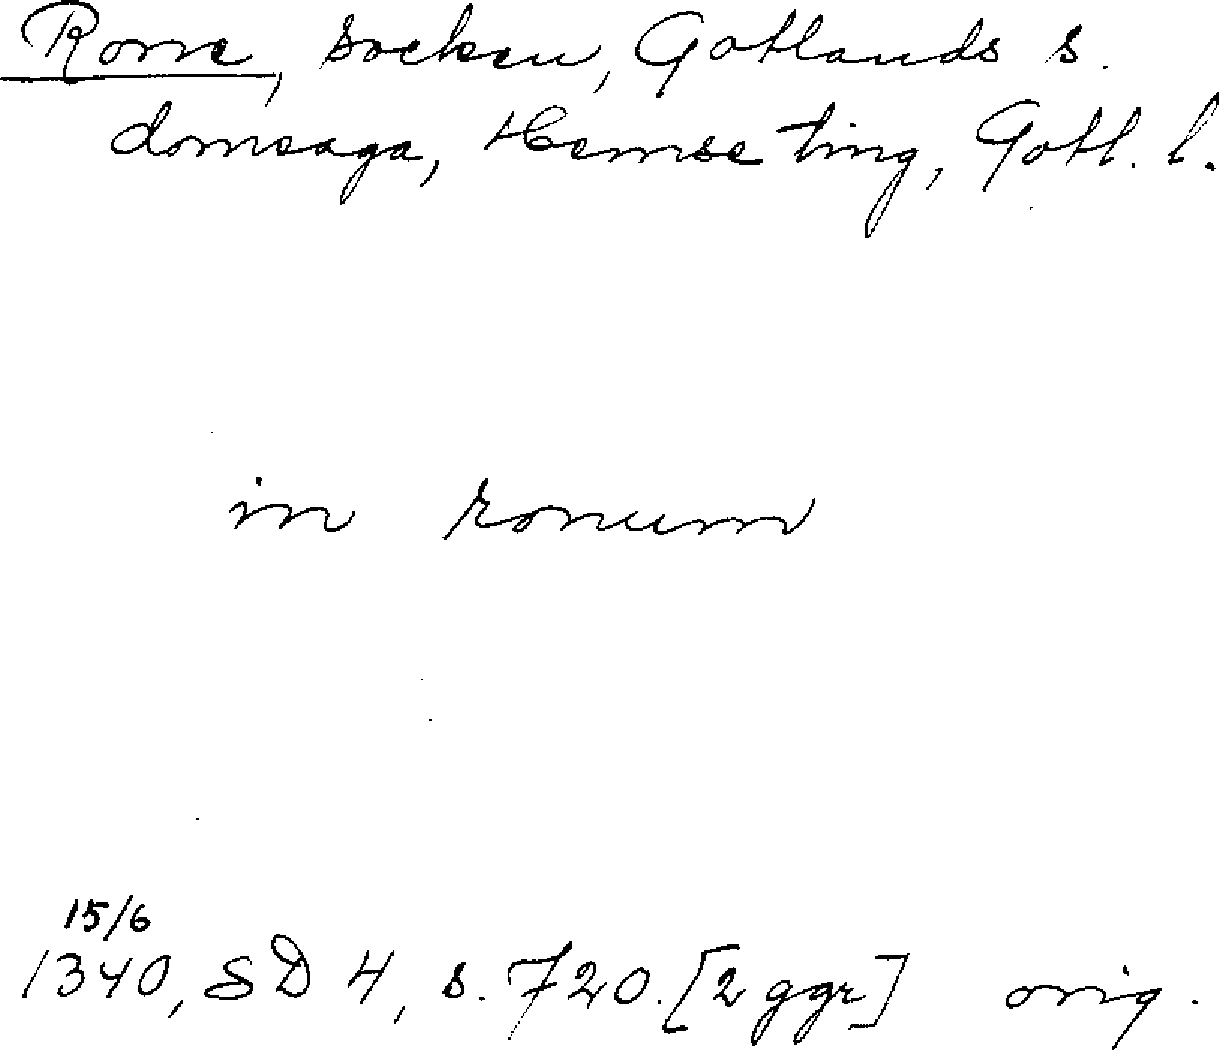 Rone, socken, Gotlands s.
domsaga, Hemse ting, Gotl. l.
in ronum
15/6
1340, SD 4, s. 720. [2 ggr] orig.